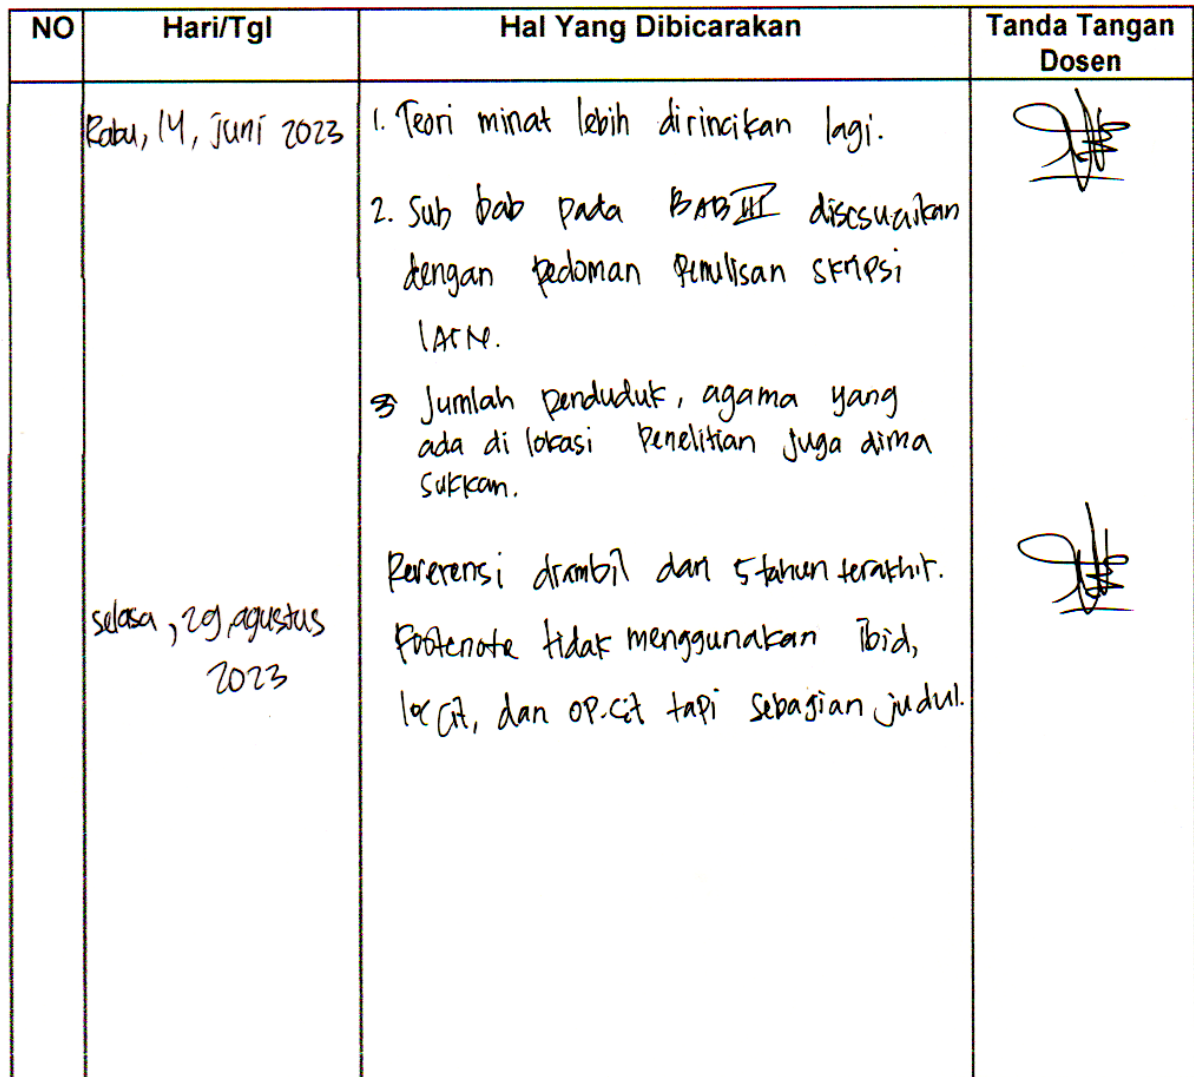 NO Hari/Tgl Hal Yang Dibicarakan Tanda Tangan
Dosen
Rabu, 14, Juni 2023 1. Teori minat lebih dirincikan lagi.
2. Sub bab pada BAB III disesuaikan
dengan pedoman penulisan skripsi
IAIN.
3 Jumlah penduduk, agama yang
ada di lokasi penelitian juga dima
sukkan.
Referensi diambil dari 5 tahun terakhir.
selasa, 29, agustus
2023
Footenote tidak menggunakan ibid,
loc cit, dan op.cit tapi sebagian judul.